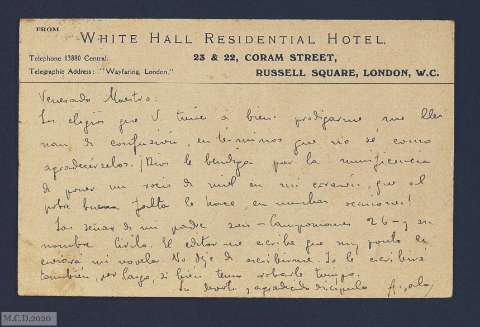 FROM
WHITE HALL RESIDENTIAL HOTEL.
Telephone 13880 Central.
23 & 22, CORAM STREET,
Telegraphic Address: "Wayfaring, London."
RUSSELL SQUARE, LONDON, W.C.
Venerado Maestro:
Los elogios que V tiene a bien prodigarme me lle
nan de confusión, en términos que no sé como
agradecérselos. ¡Dios le bendiga por la munificencia
de poner un rocío de miel en mi corazón, que al
pobre buena falta le hace, en muchas ocasiones!
Las señas de mi padre son: Campomanes 26 - y su
nombre Cirilo. El editor me escribe que muy pronto le
enviará mi novela. No deje de escribirme. Yo le escribiré
también, por largo, si bien temo robarle tiempo.
Su devoto y agradecido discípulo
M.C.D. 2020